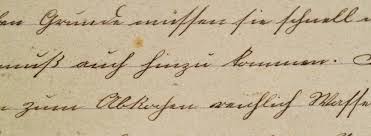 en Grunde müssen sie schnell
muß auch hinzu kommen.
zum Abkochen reichlich Wasse